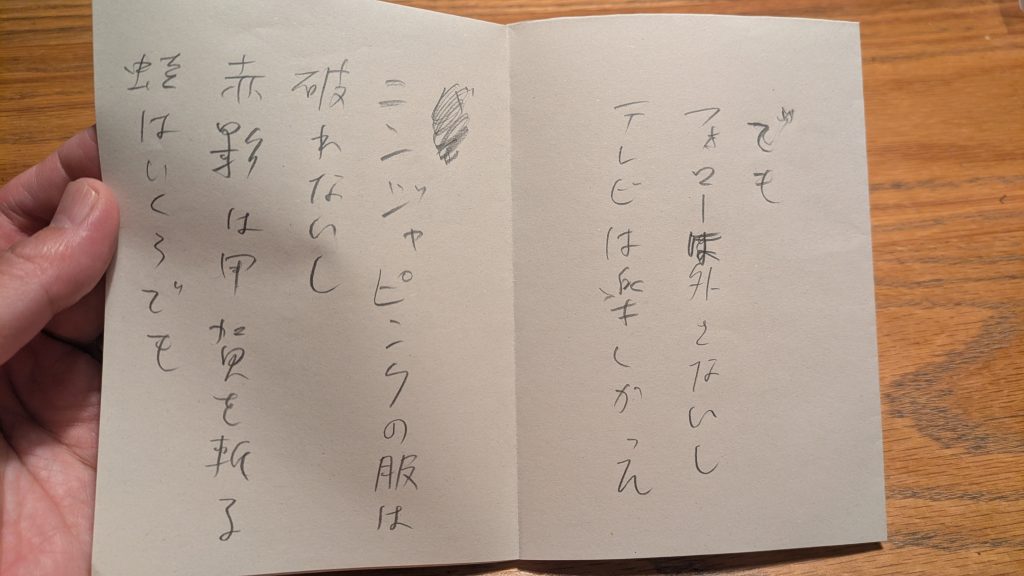 でも
フォロー外さないし
テレビは楽しかった
ニンジャピンクの服は
破れないし
赤影は甲賀を斬る
蛭はいくらでも